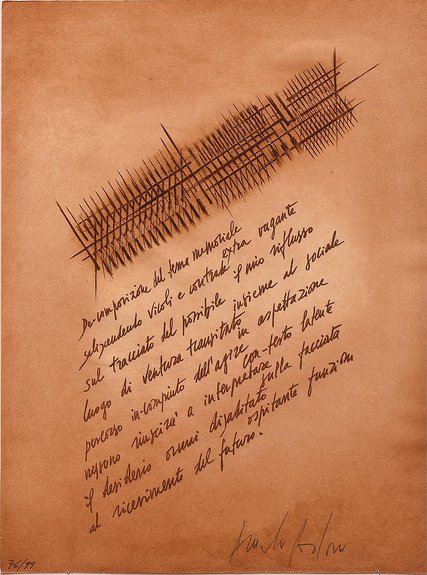 De-composizione del tema memoriale
selezionando vicoli e contrade extra vagante
sul tracciato del possibile il mio riflusso
luogo di ventura transitato insieme al sociale
percorso in-compiuto dell'agire in aspettazione
nessuno riuscirà a interpretare con-testo latente
il desiderio ormai disabitato sulla facciata
al ricevimento del futuro. ospitante funzioni
76/99